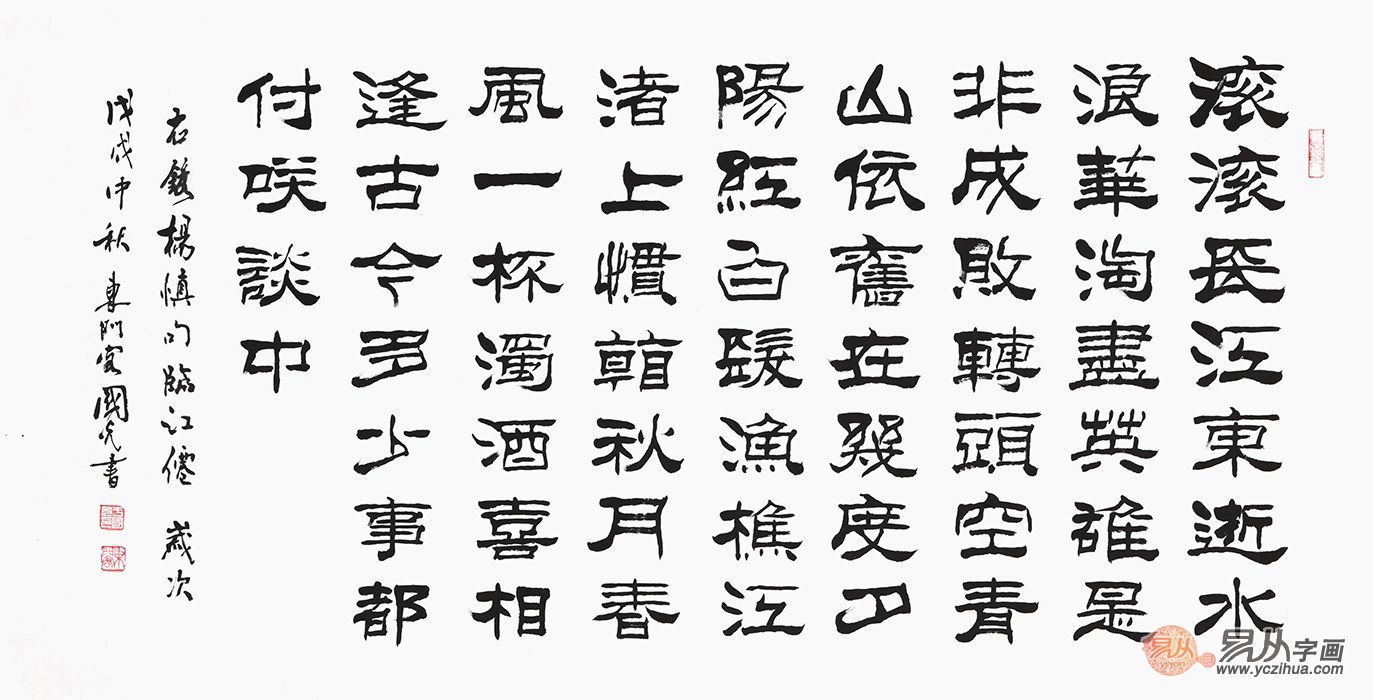 滚滚長江東逝水
浪華淘盡英雄是
非成敗轉頭空青
山依舊在幾度夕
陽紅白髮漁樵江
渚上慣看秋月春
風一杯濁酒喜相
逢古今多少事都
付咲談中
右錄楊慎句臨江僊 歲次
戊戌中秋 東國光書
易从字画
www.yczihua.com